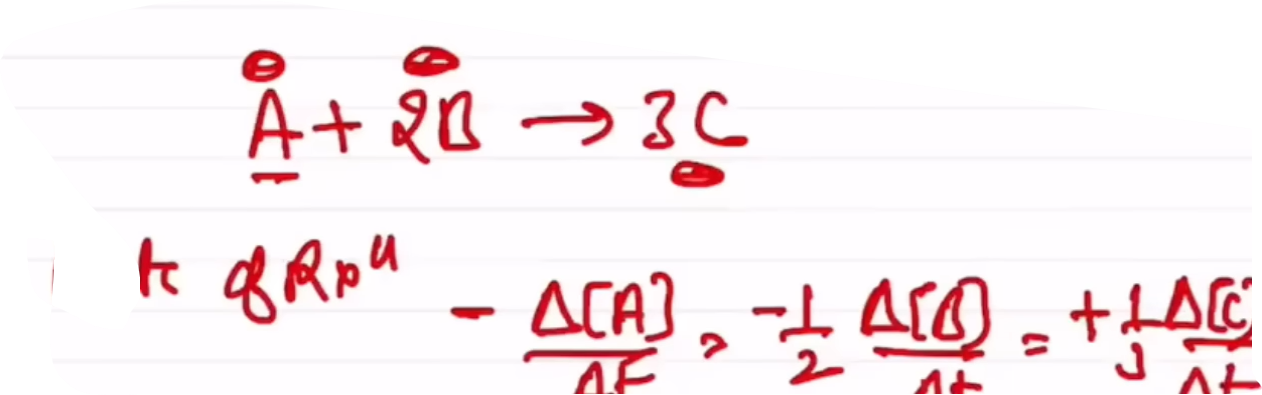 A + 2B → 3C
of Rxn
- Δ[A]/Δt = -1/2 Δ[B]/Δt = +1/3 Δ[C]/Δt